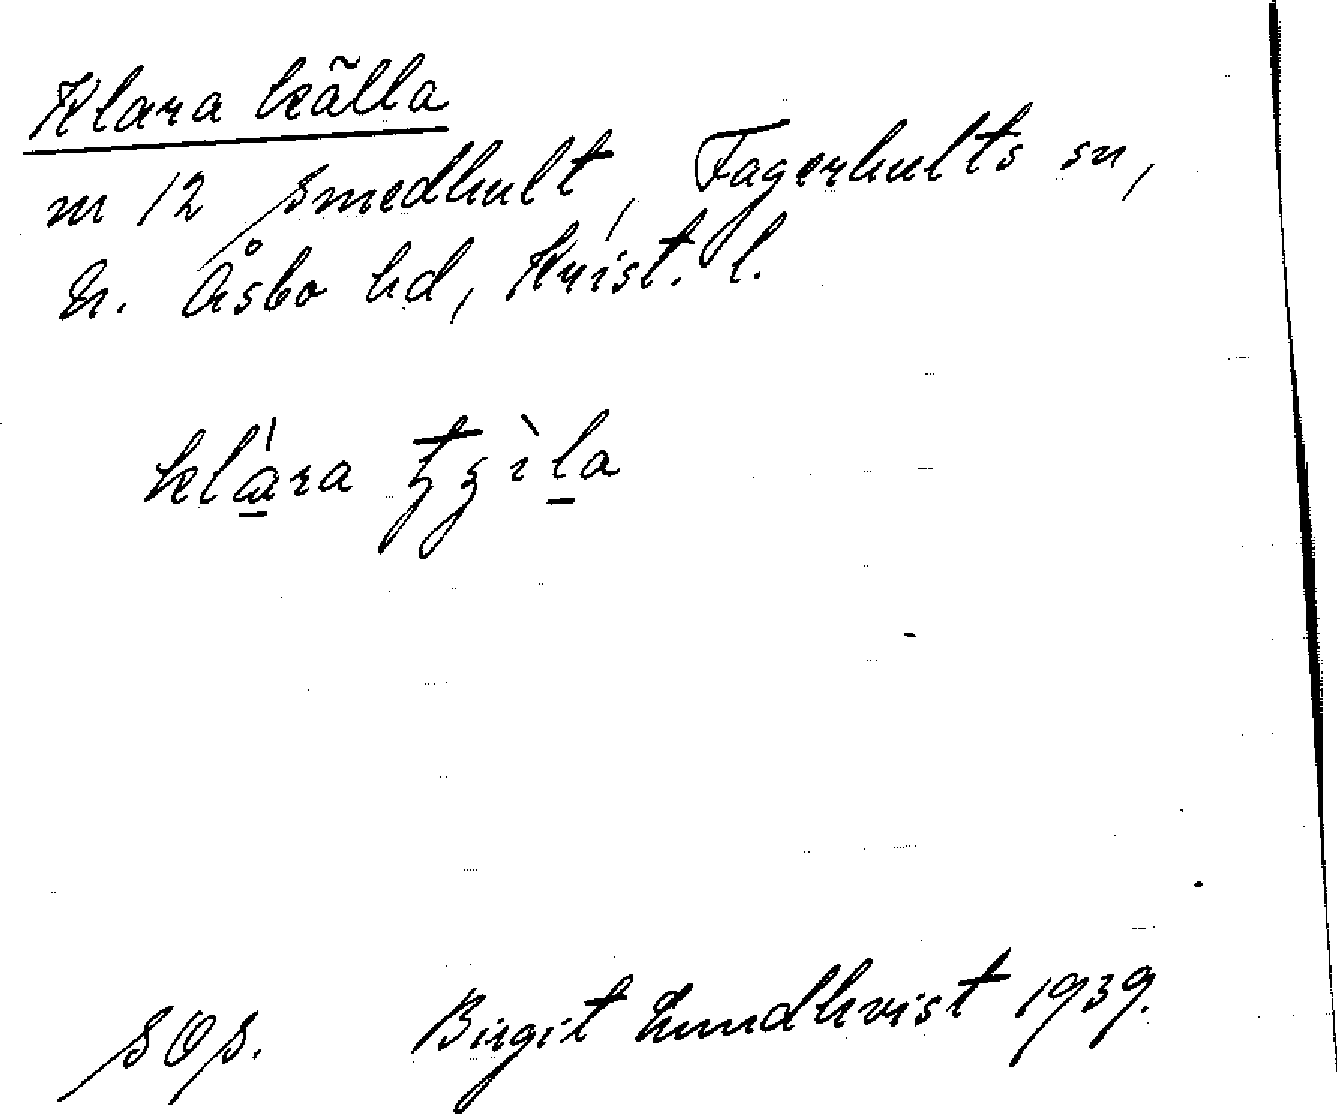 Klara källa
nr 12 Smedhult, Fagerhults sn,
N. Åsbo hd, Krist. l.
klára
SOS. Birgit Lundkvist 1939.